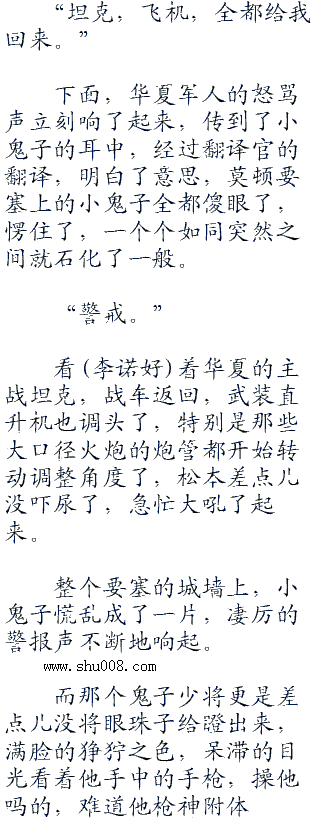 “坦克，飞机，全都给我
回来。”
下面，华夏军人的怒骂
声立刻响了起来，传到了小
鬼子的耳中，经过翻译官的
翻译，明白了意思，莫顿要
塞上的小鬼子全都傻眼了，
愣住了，一个个如同突然之
间就石化了一般。
“警戒。”
看(李诺好)着华夏的主
战坦克，战车返回，武装直
升机也调头了，特别是那些
大口径火炮的炮管都开始转
动调整角度了，松本差点儿
没吓尿了，急忙大吼了起
来。
整个要塞的城墙上，小
鬼子慌乱成了一片，凄厉的
警报声不断地响起。
www.shu008.com
而那个鬼子少将更是差
点儿没将眼珠子给瞪出来，
满脸的狰狞之色，呆滞的目
光看着他手中的手枪，操他
吗的，难道他枪神附体